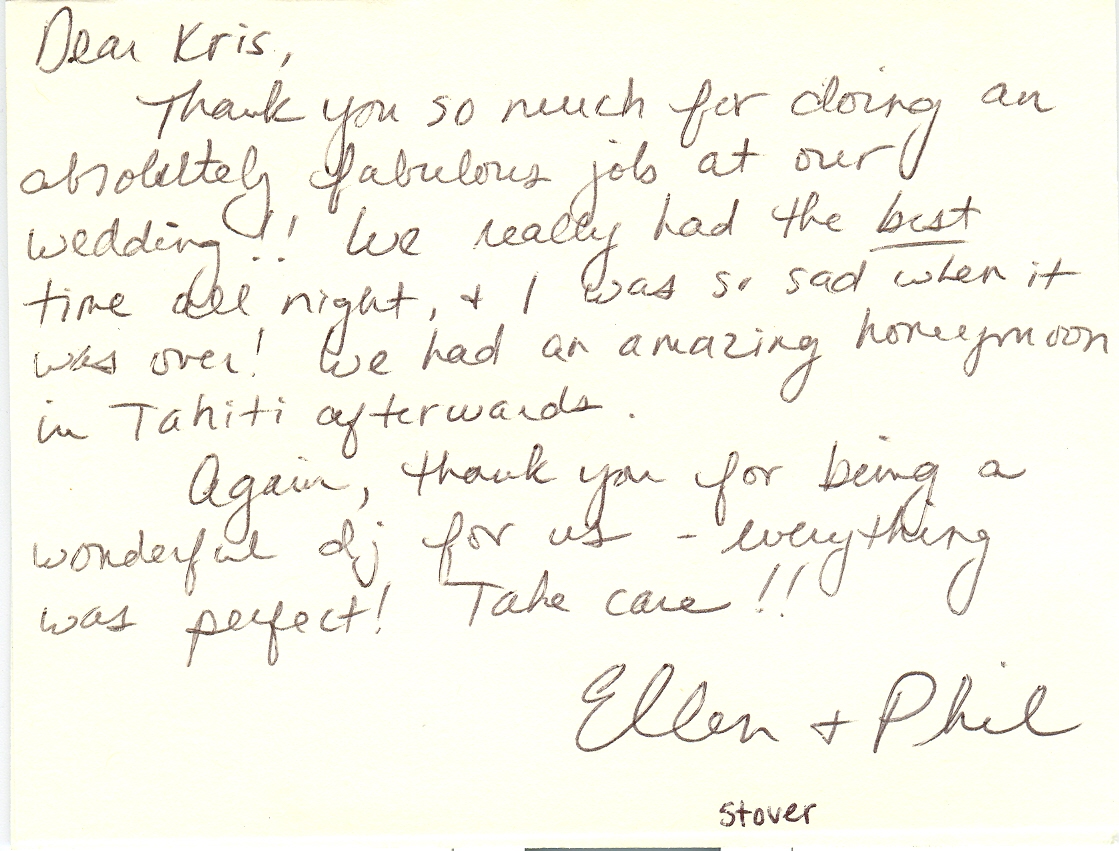 Dear Kris,
Thank you so much for doing an
absolutely fabulous job at our
wedding!! We really had the best
time all night, & I was so sad when it
was over! We had an amazing honeymoon
in Tahiti afterwards.
Again, thank you for being a
wonderful dj for us - everything
was perfect! Take care!!
Ellen + Phil
Stover